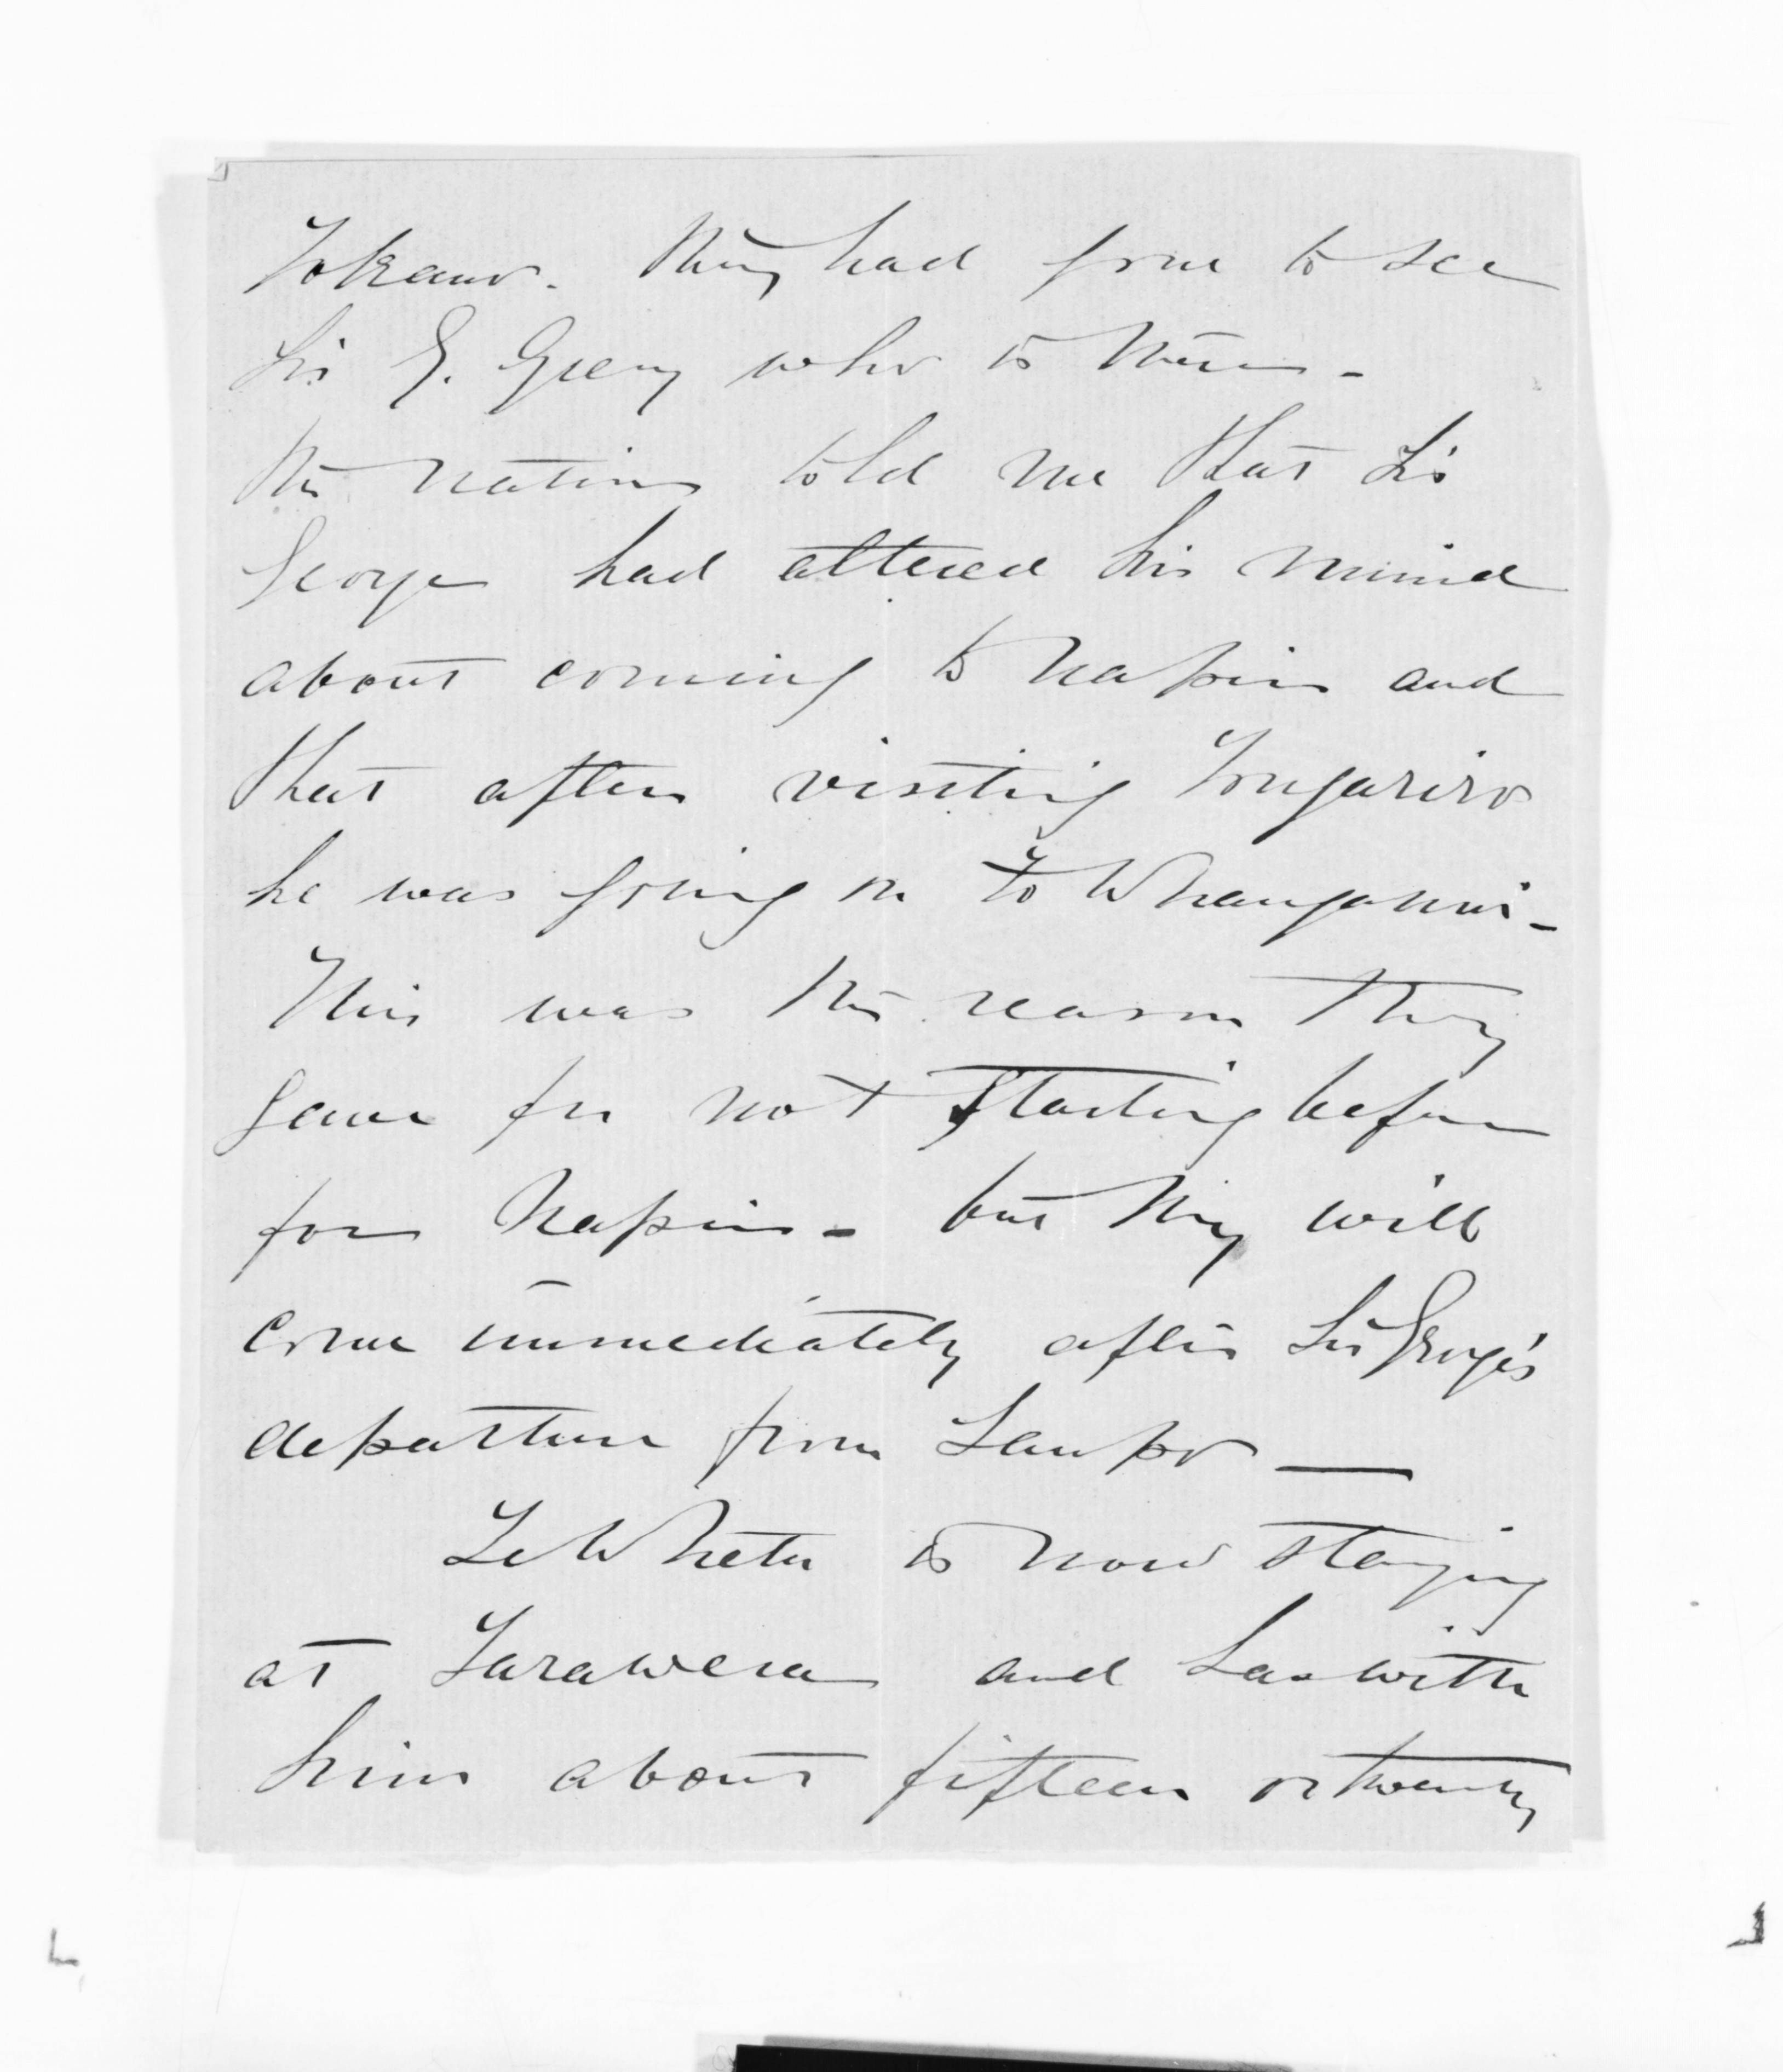 Tokanu. They had gone to see
Sir G. Grey who is there -
The natives told me that Sir
George had altered his mind
about coming to Napier and
that after visiting Tongariro
he was going on to Whanganui -
This was the reason they
gave for not starting before
for Napier - but they will
come immediately after Sir George's
departure from Taupo —
Te Wheta is now staying
at Tarawera and has with
him about fifteen or twenty